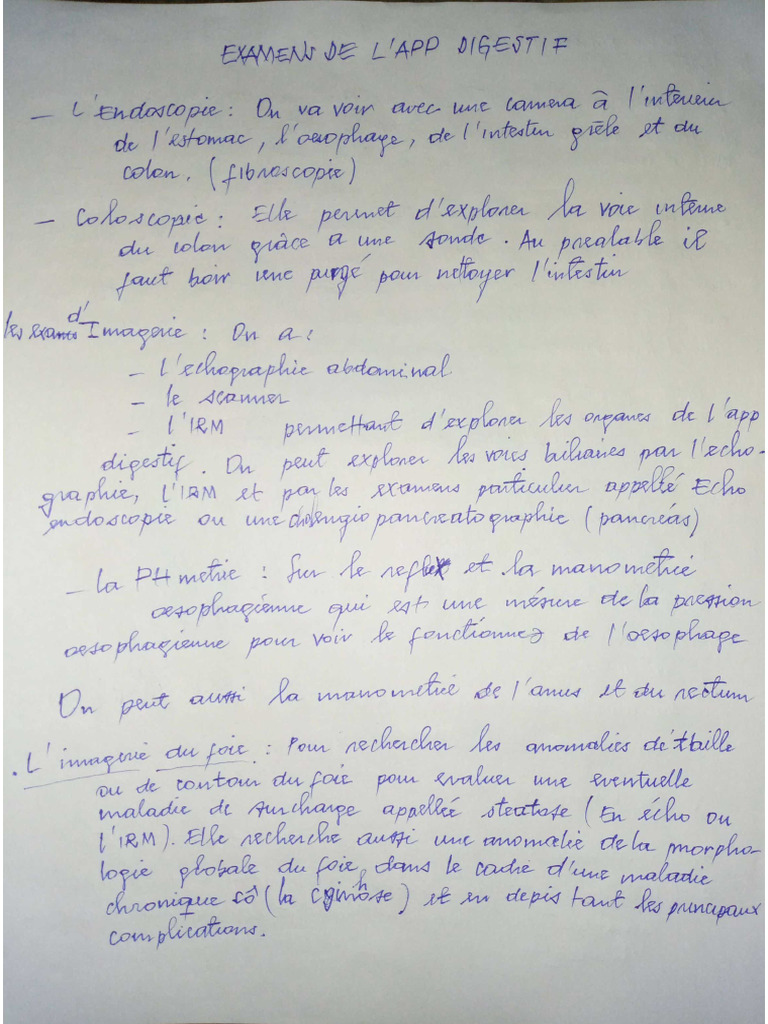 EXAMENS DE L'APP DIGESTIF
- L'Endoscopie : On va voir avec une camera à l'interieur
de l'estomac, l'oesophage, de l'intestin grêle et du
colon. (fibroscopie)
- Coloscopie : Elle permet d'explorer la voie interne
du colon grâce a une sonde. Au prealable il
faut boir une purgé pour nettoyer l'intestin
les exams d'Imagerie : On a :
- l'echographie abdominal
- le scanner
- l'IRM permettant d'explorer les organes de l'app
digestif. On peut explorer les voies biliaires par l'echo-
graphie, l'IRM et par les examens particulier appellé Echo
endoscopie ou une cholengiopancreatographie (pancréas)
- la PH metrie : Sur le reflex et la manometrie
oesophagienne qui est une mésure de la pression
oesophagienne pour voir le fonctionnez de l'oesophage
On peut aussi la manometrie de l'anus et du rectum
. L'imagerie du foie : Pour rechercher les anomalies de taille
ou de contour du foie pour evaluer une eventuelle
maladie de surcharge appellée steatose (En écho ou
l'IRM). Elle recherche aussi une anomalie de la morpho-
logie globale du foie, dans le cadre d'une maladie
chronique sô (la) et en depistant les principaux
complications.